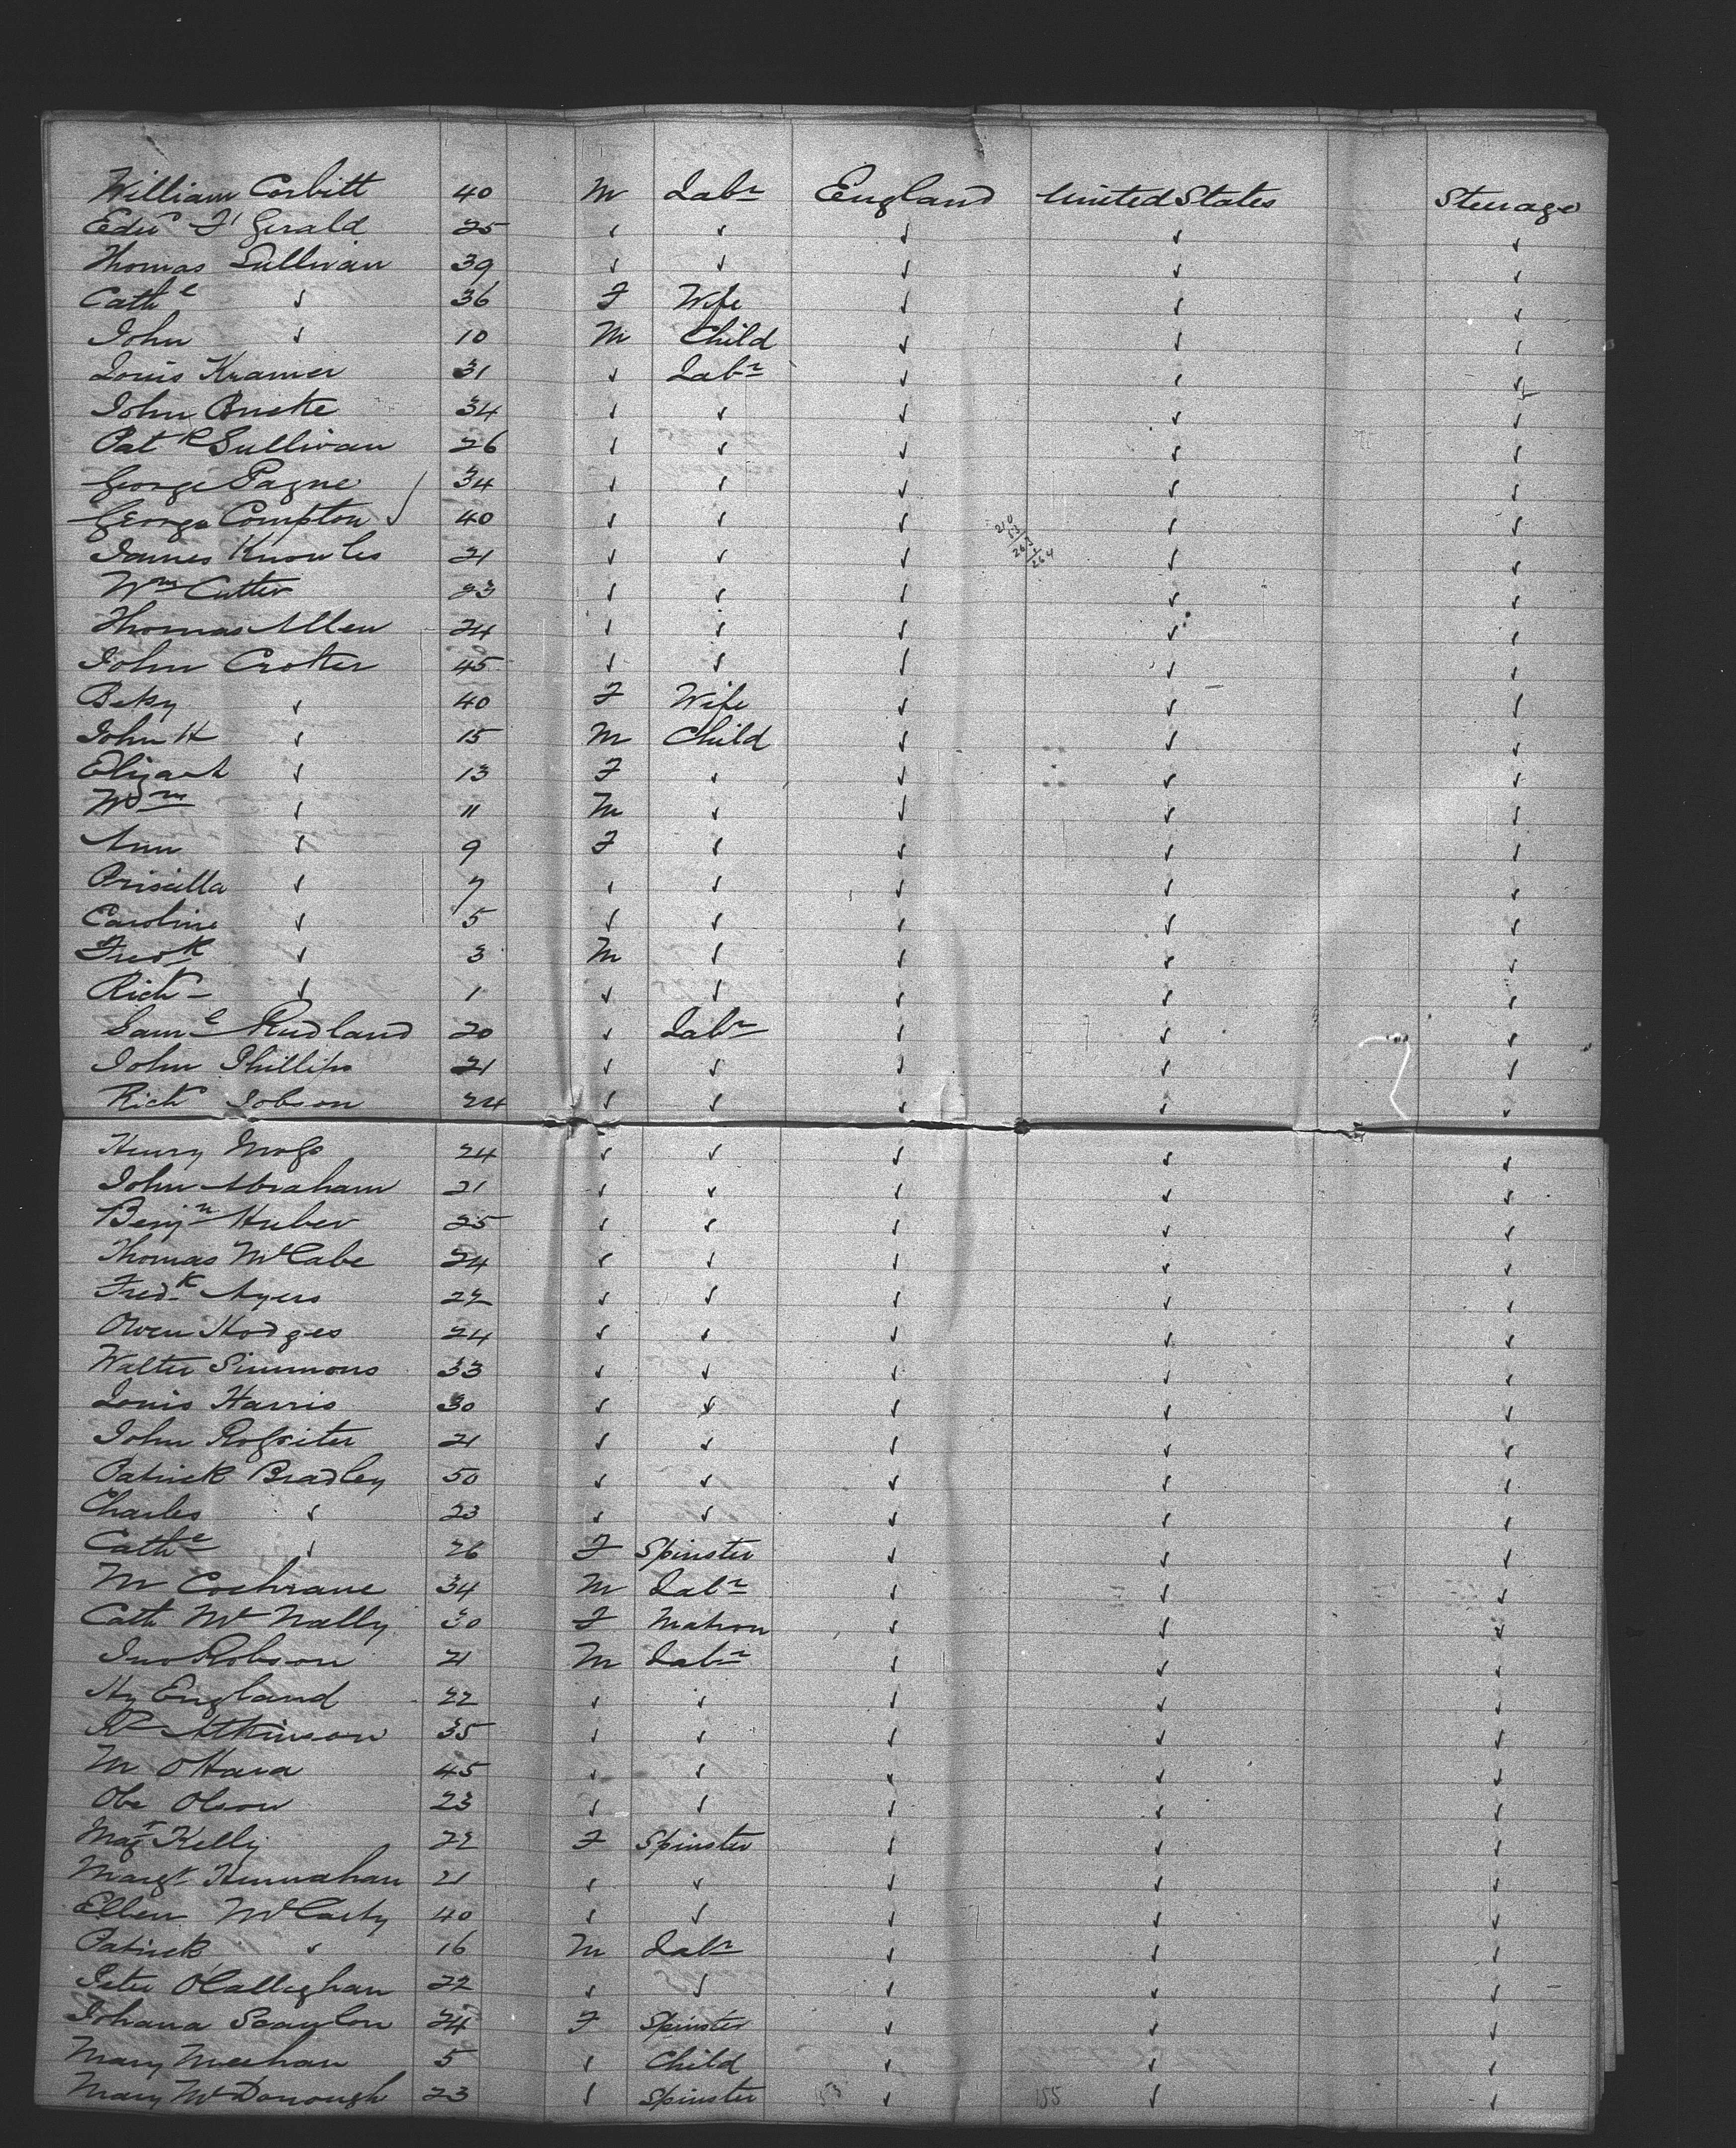 William Corbitt 40 M Labr England United States Steerage
Edw F' Gerald 25 " " " " "
Thomas Sullivan 39 " " " " "
Cathe " 36 F Wife " " "
John " 10 M Child " " "
Louis Kramer 31 " Labr " " "
John Burke 34 " " " " "
Patk Sullivan 26 " " " " "
George Pagne 34 " " " " "
George Compton 40 " " " " "
James Knowles 21 " " " " "
Wm Cutter 23 " " " " "
Thomas Allen 24 " " " " "
John Crotter 45 " " " " "
Beky " 40 F Wife " " "
John H " 15 M Child " " "
Elizath " 13 F " " " "
Wm " 11 M " " " "
Ann " 9 F " " " "
Priscilla " 7 " " " " "
Caroline " 5 " " " " "
Fredk " 3 M " " " "
Richd " 1 " " " " "
Saml Rudland 20 " Labr " " "
John Phillips 21 " " " " "
Richd Jobson 24 " " " " "
Henry Moss 24 " " " " "
John Abraham 21 " " " " "
Benjn Huber 25 " " " " "
Thomas McCabe 24 " " " " "
Fredk Ayers 22 " " " " "
Owen Hodges 24 " " " " "
Walter Simmons 33 " " " " "
Louis Harris 30 " " " " "
John Rossiter 21 " " " " "
Patrick Bradley 50 " " " " "
Charles " 23 " " " " "
Cathe " 26 F Spinster " " "
M Cochrane 34 M Labr " " "
Cath McNally 30 F Matron " " "
Jno Robson 21 M Labr " " "
Hy England 22 " " " " "
R Atkinson 35 " " " " "
M OHara 45 " " " " "
Obe Olson 23 " " " " "
Magt Kelly 22 F Spinster " " "
Margt Hunnahan 21 " " " " "
Ellen McCarty 40 " " " " "
Patrick " 16 M Labr " " "
Peter OCallighan 22 " " " " "
Johana Scanlon 24 F Spinster " " "
Mary Meehan 5 " Child " " "
Mary McDonough 23 " Spinster " " "
153 155